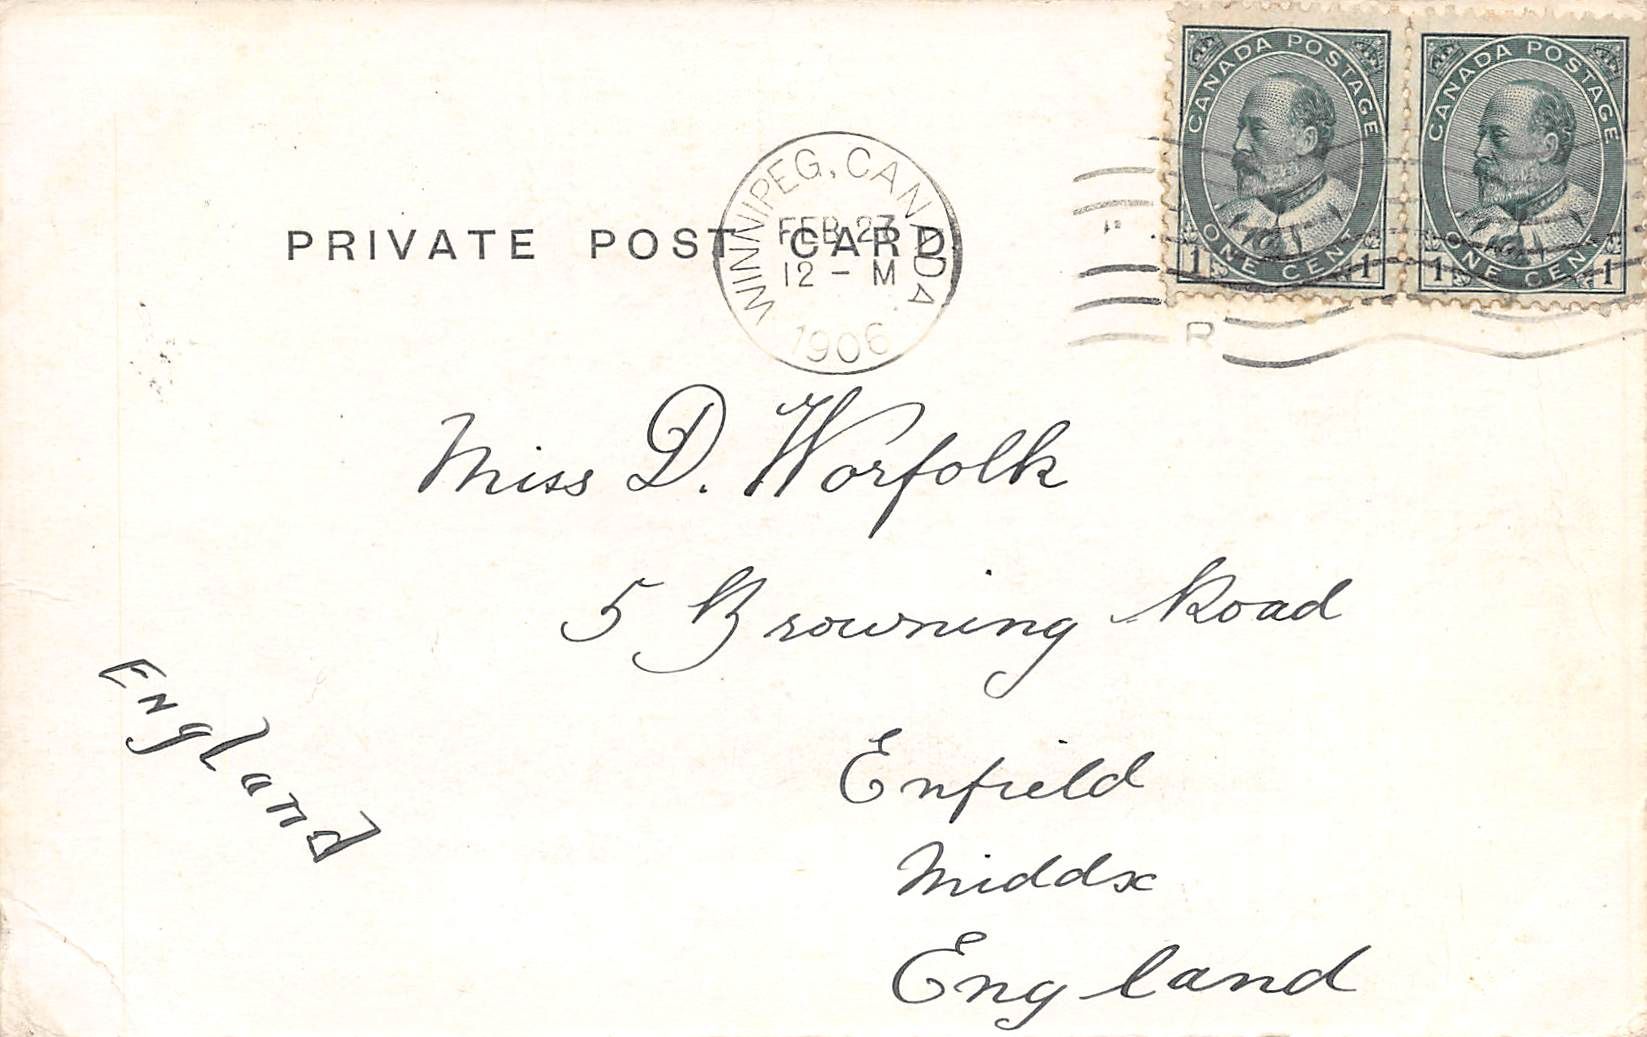 CANADA POSTAGE
ONE CENT
1 1
CANADA POSTAGE
ONE CENT
1 1
WINNIPEG, CANADA
FEB 23
12 - M
1906
PRIVATE POST CARD
R
Miss D. Worfolk
5 Browning Road
Enfield
Middx
England
England